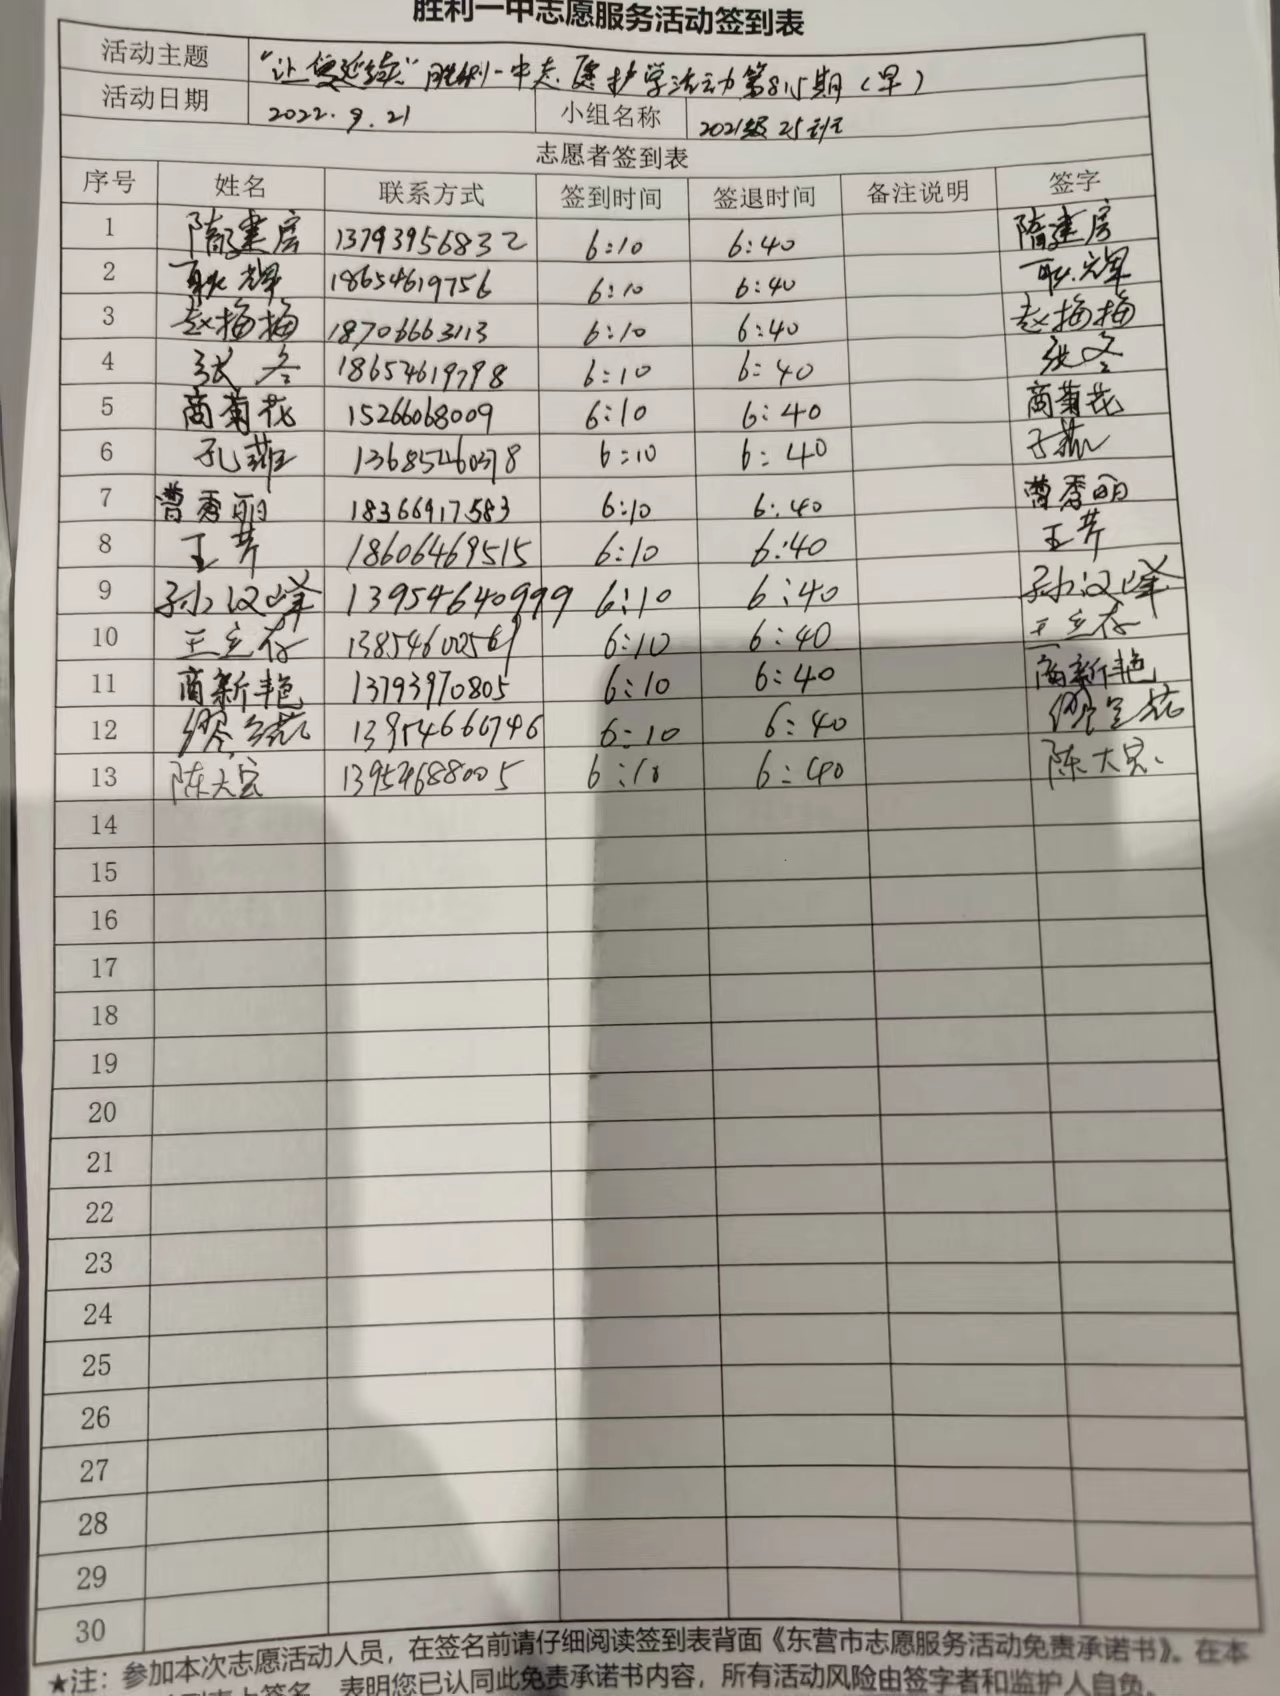 胜利一中志愿服务活动签到表
活动主题 “让爱延续”胜利一中志愿护学活动第815期（早）
活动日期 2022.9.21 小组名称 2021级25班
志愿者签到表
序号 姓名 联系方式 签到时间 签退时间 备注说明 签字
1 隋建房 13793956832 6:10 6:40 隋建房
2 耿辉 18654619756 6:10 6:40 耿辉
3 赵梅梅 18706663113 6:10 6:40 赵梅梅
4 张冬 18654619798 6:10 6:40 张冬
5 商菊花 15266068009 6:10 6:40 商菊花
6 孔 13685460378 6:10 6:40
7 曹秀丽 18366917583 6:10 6:40 曹秀丽
8 王芹 18606469515 6:10 6:40 王芹
9 孙汉峰 13954640999 6:10 6:40 孙汉峰
10 王立存 6:10 6:40 王立存
11 商新艳 13793970805 6:10 6:40 商新艳
12 13954666746 6:10 6:40
13 陈大 13954688005 6:10 6:40 陈大
14
15
16
17
18
19
20
21
22
23
24
25
26
27
28
29
30
★注：参加本次志愿活动人员，在签名前请仔细阅读签到表背面《东营市志愿服务活动免责承诺书》。在本
到表上签名，表明您已认同此免责承诺书内容，所有活动风险由签字者和监护人自负。